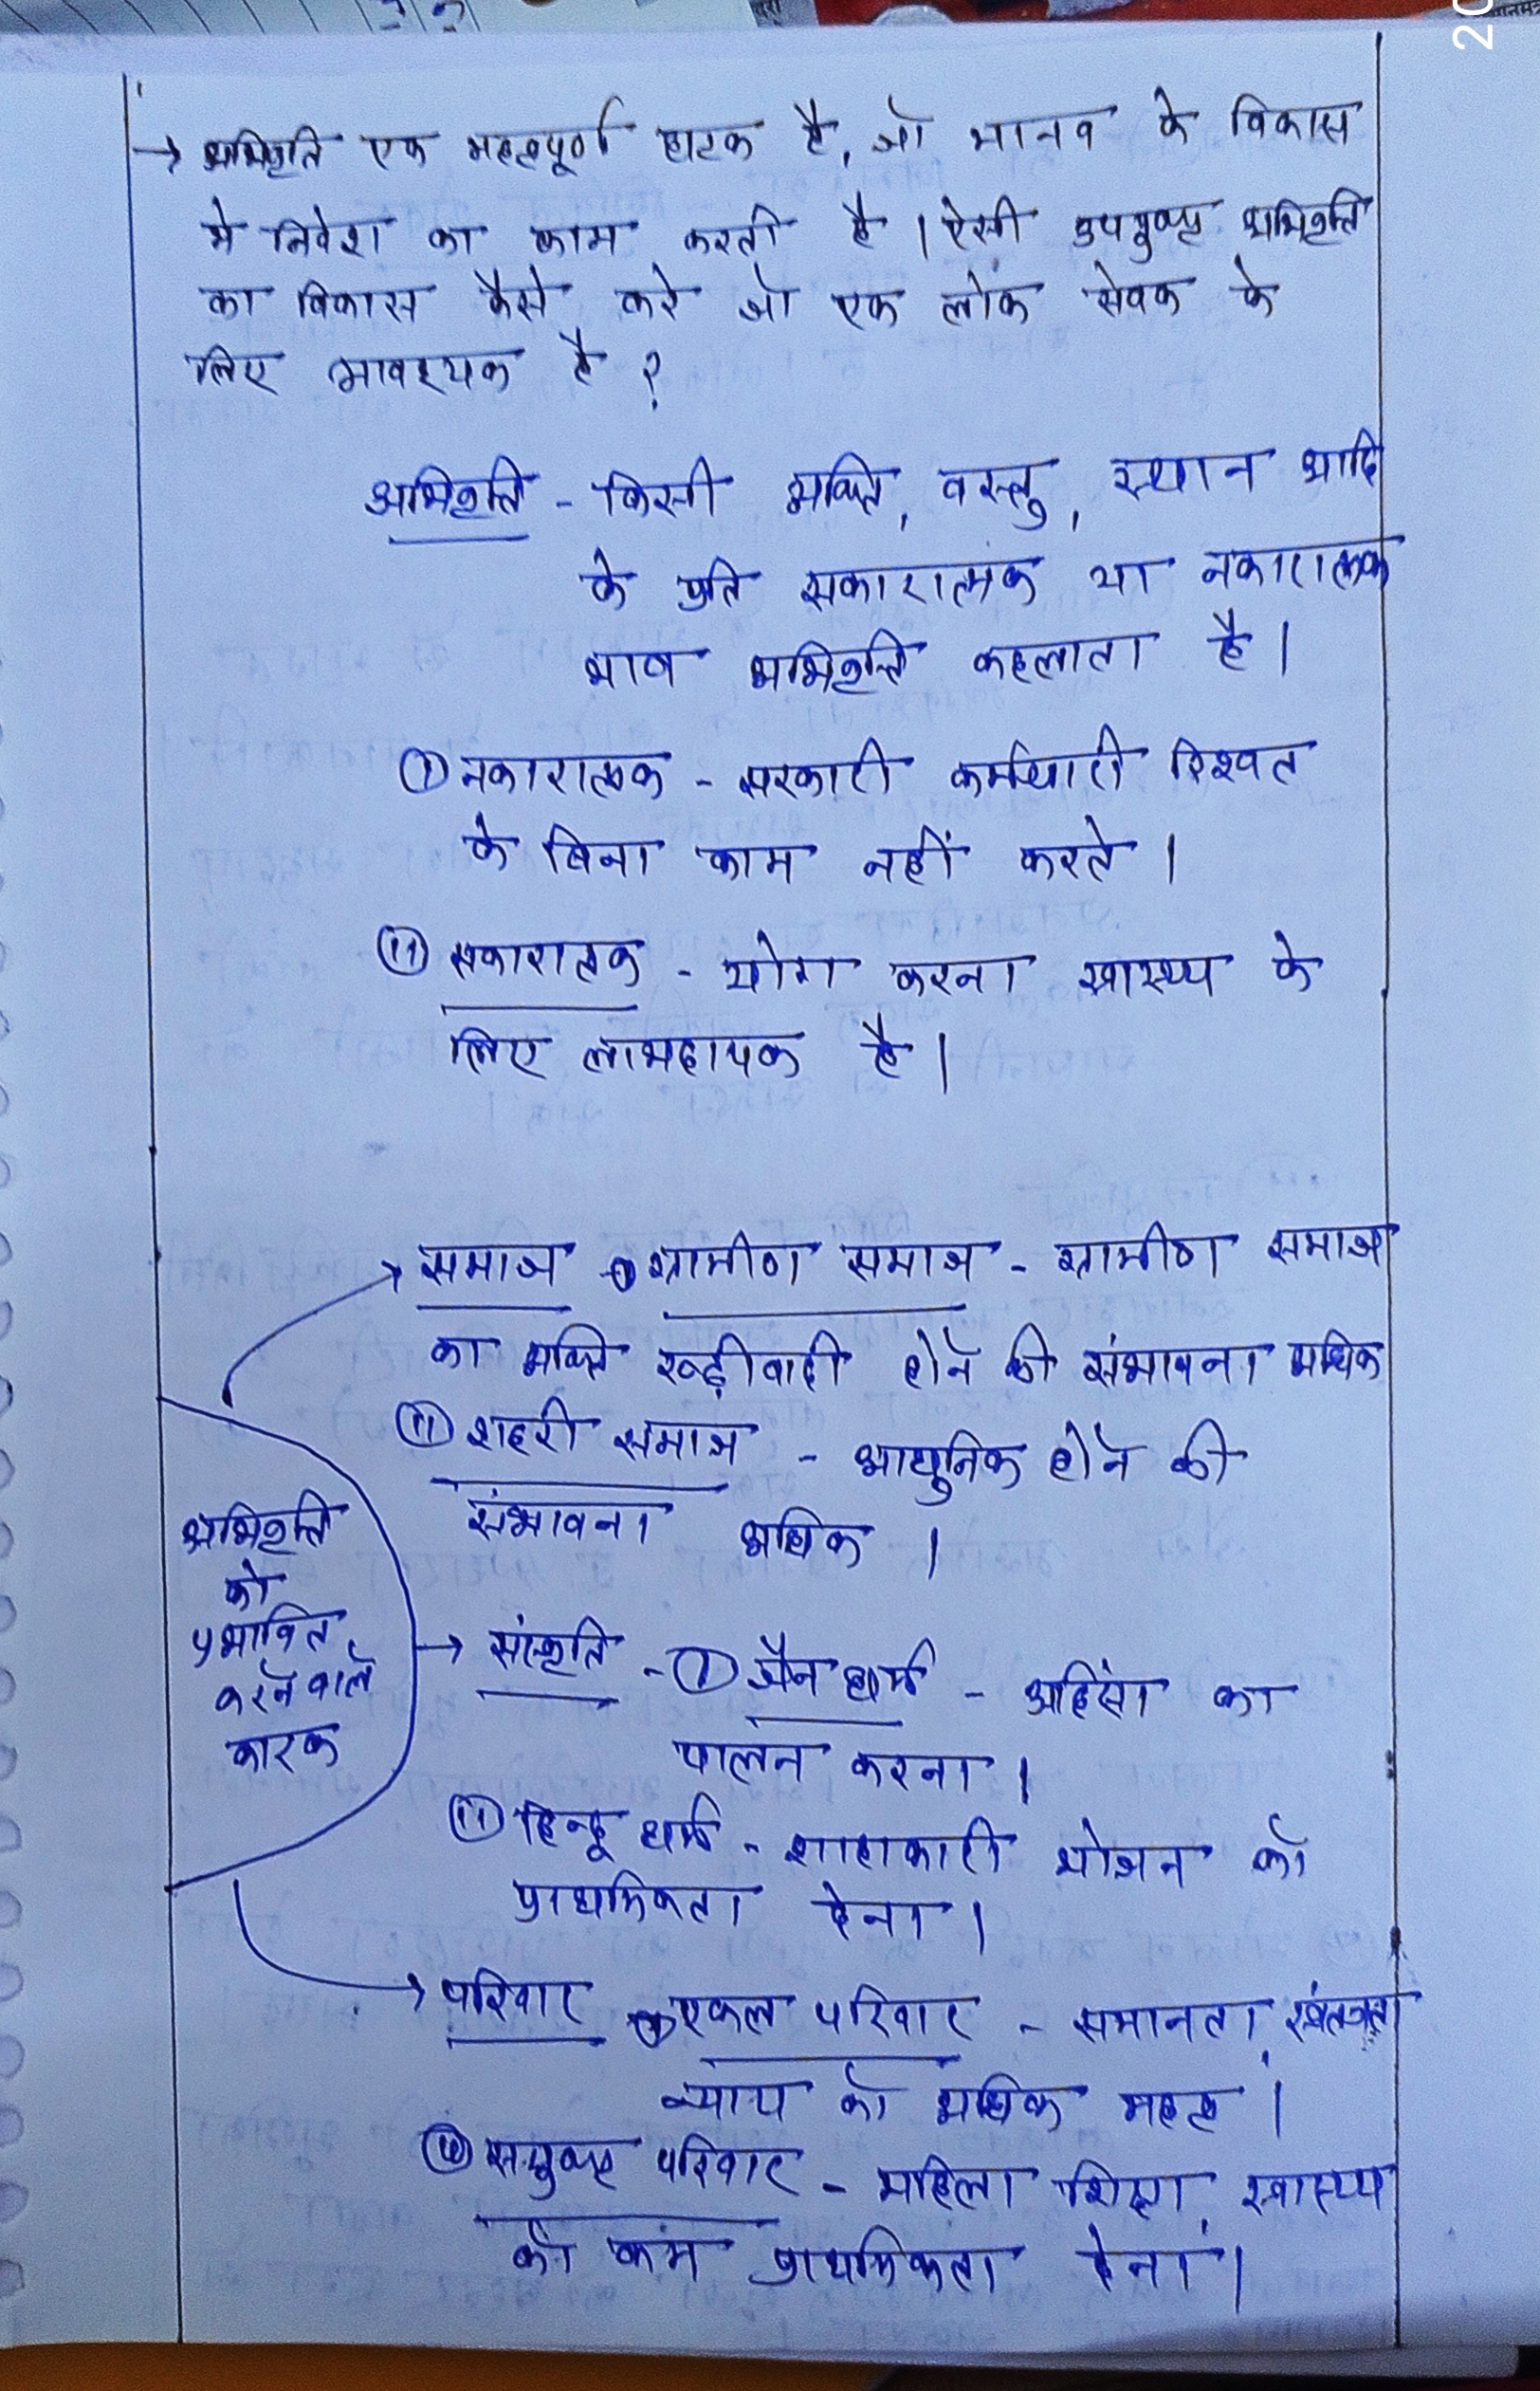 → अभिवृत्ति एक महत्वपूर्ण घटक है, जो मानव के विकास
मे निवेश का काम करती है । ऐसी उपयुक्त अभिवृत्ति
का विकास कैसे करे जो एक लोक सेवक के
लिए आवश्यक है ?
अभिवृत्ति - किसी व्यक्ति, वस्तु, स्थान आदि
के प्रति सकारात्मक या नकारात्मक
भाव अभिवृत्ति कहलाता है ।
(i) नकारात्मक - सरकारी कर्मचारी रिश्वत
के बिना काम नहीं करते ।
(ii) सकारात्मक - योगा करना स्वास्थ्य के
लिए लाभदायक है ।
→ समाज (i) ग्रामीण समाज - ग्रामीण समाज
का व्यक्ति रूढ़ीवादी होने की संभावना अधिक
(ii) शहरी समाज - आधुनिक होने की
संभावना अधिक ।
अभिवृत्ति
को
प्रभावित
करने वाले
कारक
→ संस्कृति - (i) जैन धर्म - अहिंसा का
पालन करना ।
(ii) हिन्दू धर्म - शाहाकारी भोजन को
प्राथमिकता देना ।
→ परिवार (i) एकल परिवार - समानता, स्वतंत्रता
न्याय को अधिक महत्व ।
(ii) सयुक्त परिवार - महिला शिक्षा, स्वास्थ्य
को कम प्राथमिकता देना ।